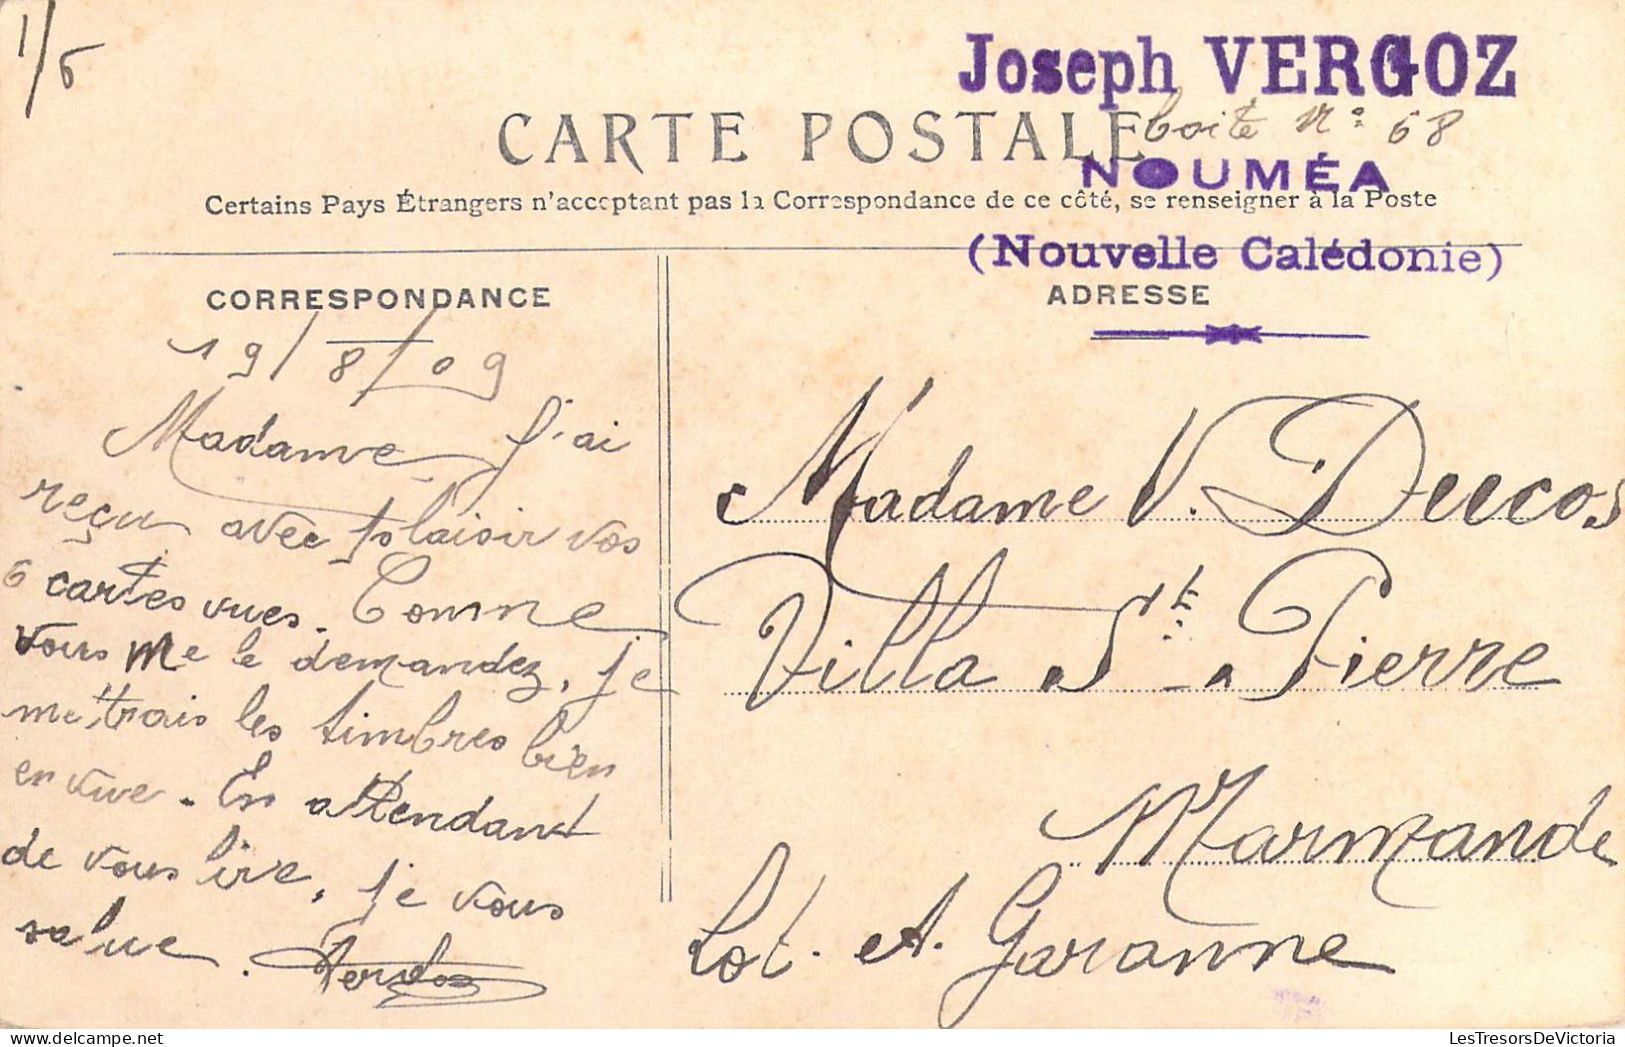 1/6
Joseph VERGOZ
CARTE POSTALE
boite N° 68
NOUMÉA
Certains Pays Étrangers n'acceptant pas la Correspondance de ce côté, se renseigner à la Poste
(Nouvelle Calédonie)
CORRESPONDANCE
ADRESSE
19/8/09
Madame J'ai
reçu avec plaisir vos
6 cartes vues. Comme
vous me le demandez, je
mettrais les timbres bien
en vue. En attendant
de vous lire, je vous
salue.
Madame V. Ducos
Villa St. Pierre
Marmande
Lot. et. Garonne
LesTresorsDeVictoria